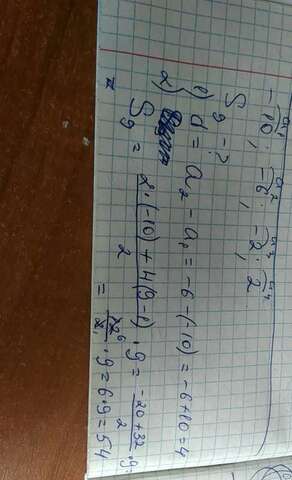 a₁ a₂ a₃ a₄
-10; -6; -2; 2
S₉ - ?
1) d = a₂ - a₁ = -6 - (-10) = -6 + 10 = 4
2) S₉ = \frac{2·(-10) + 4(9-1)}{2} · 9 = \frac{-20+32}{2} · 9 =
= \frac{12}{2} · 9 = 6·9 = 54